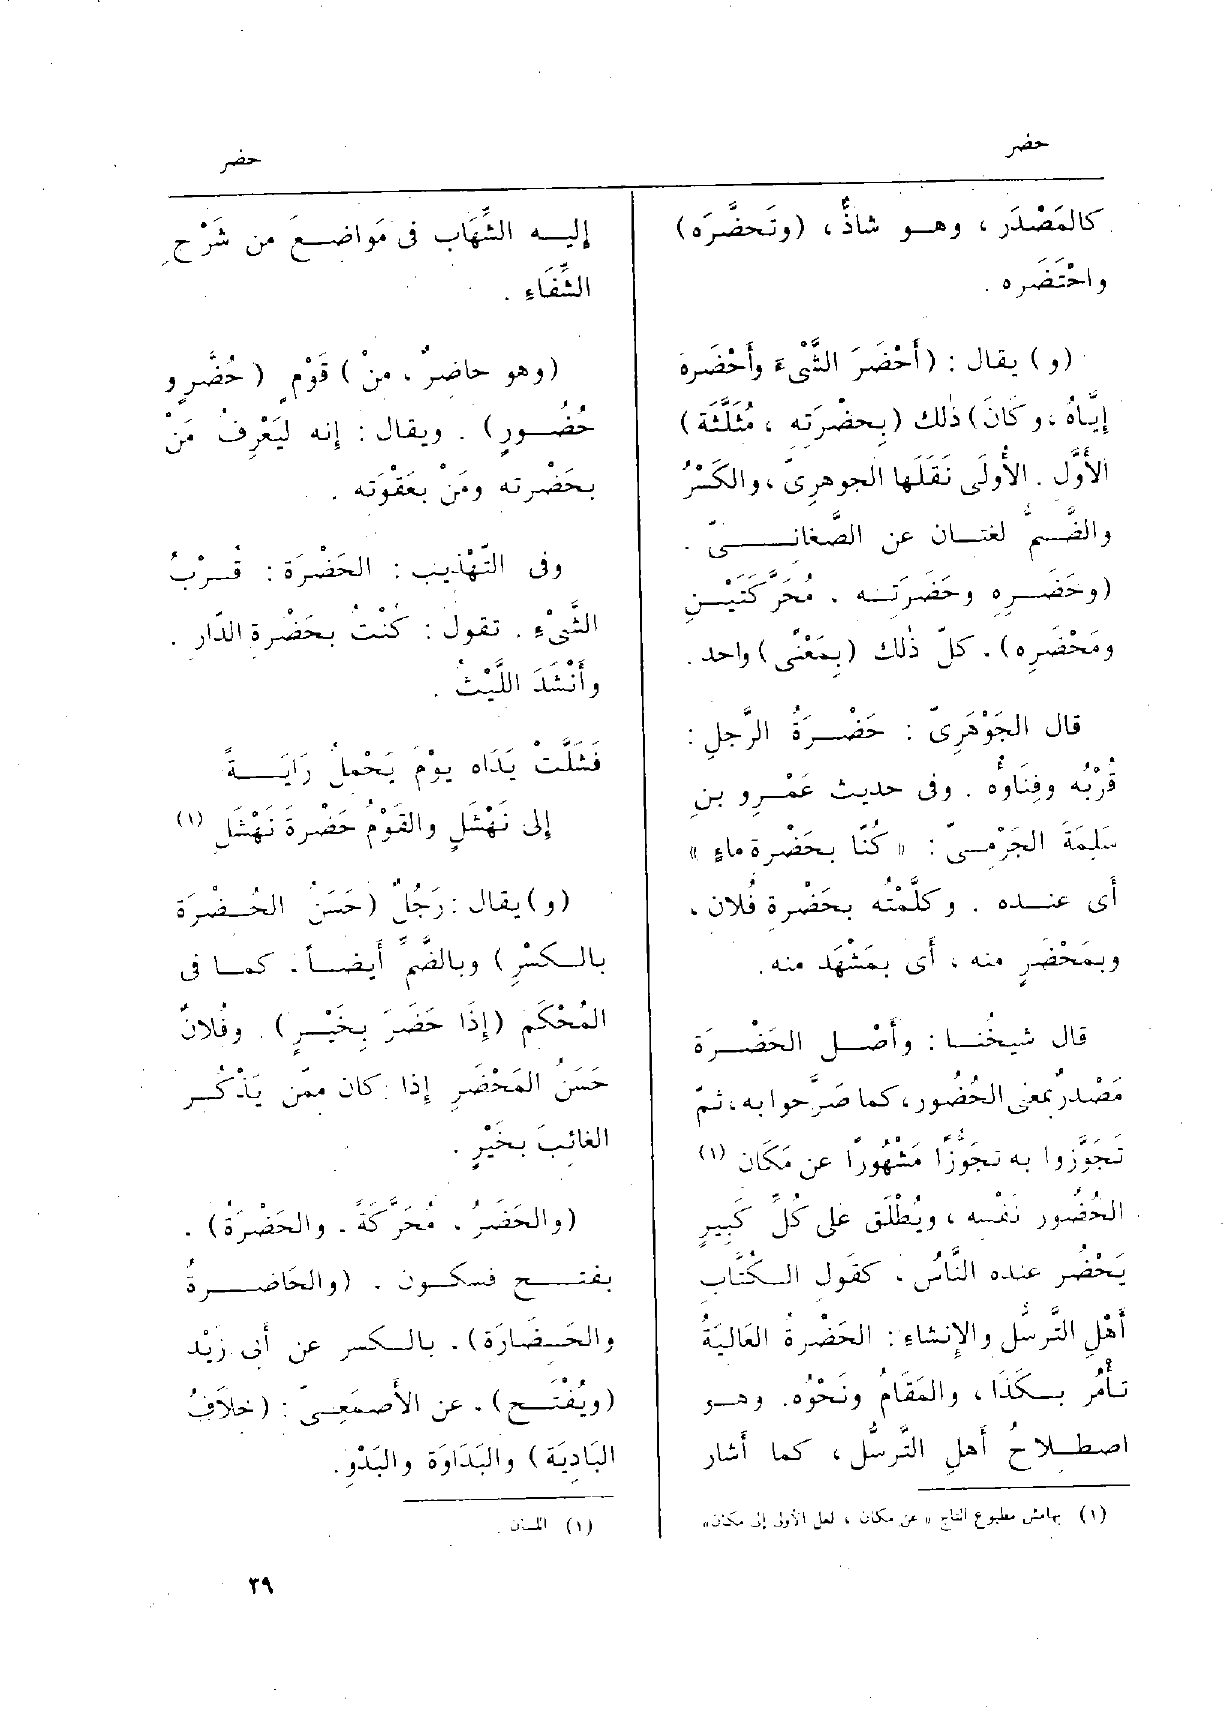 حضر
حضر
كالمَصْدَر ، وهـو شاذٌّ ، (وتَحضَّرَه)
واحْتَضَره .
(و) يقال : (أَحْضَرَ الشَّىْءَ وأَحْضَرهَ
إيَّاهُ ، وكَانَ) ذٰلك (بِحضْرَتِه ، مُثَلَّثَة)
الأَوَّل . الأُولَى نَقَلَها الجوهرِىّ ، والكَسْرُ
والضَّـمُّ لغتـان عن الصَّغانـــىّ .
(وحَضَـرِهِ وحَضَرَتِـه . مُحَرَّكَتَيْـنِ
ومَحْضَرِه) . كلّ ذٰلك (بِمَعْنًى) واحد .
قال الجَوْهَرِىّ : حَضْـرَةُ الرَّجلِ :
قُرْبُه وفِنَاوُه . وفى حديث عَمْرِو بن
سَلِمَةَ الجَرْمـىّ : « كُنَّا بحَضْرة ماءٍ »
أى عنـده . وكلَّمْتُه بحَضْرةِ فُلان ،
وبمَحْضَرٍ منه ، أى بمَشْهَد منه .
قال شيخُنـا : وأَصْـل الحَضْـرَة
مَصْدرٌ بمعنى الحُضُور ، كما صَرَّحوا به ، ثمّ
تَجَوَّزوا به تَجَوُّزًا مَشْهُورًا عن مَكَان (١)
الحُضُور نَفْسِه ، ويُطْلَق على كُلِّ كَبِيرٍ
يَحْضُر عنده النَّاسُ ، كقَولِ الـكُتَّابِ
أَهْلِ التَّرسُّلِ والإنشاء : الحَضْرةُ العَاليَةُ
تأْمُر بـكَذَا ، والمَقَامُ ونَحْوُه . وهـو
اصطـلاحُ أَهلِ التَّرسُّل ، كما أَشار
(١) بهامش مطبوع التاج « عن مكان ، لعل الأولى إلى مكان»
إليـه الشِّهَاب فى مَواضـعَ من شَرْح
الشِّفَاءِ .
(وهو حاضِرٌ ، منْ) قَوْمٍ (حُضَّرٍ و
حُضُـورٍ) . ويقال : إنه ليَعْرِفُ مَنْ
بحَضْرته ومَنْ بعَقْوَته .
وفى التَّهْذيب : الحَضْرَة : قُـرْبُ
الشَّىْءِ . تقول : كُنْتُ بحَضْرةِ الدّار .
وأَنْشَدَ اللَّيْثُ .
فَشَلَّتْ يَدَاه يوْمَ يَحْملُ رَايَـــةً
إلى نَهْشَلٍ والقَوْمُ حَضْرةَ نَهْشَلِ (١)
(و) يقال : رَجُلٌ (حَسَنُ الحُضْرَة
بالـكسْرِ) وبالضَّمِّ أَيضـاً ، كمـا فى
المُحْكَم (إذَا حَضَرَ بِخَيْـرٍ) . وفُلانٌ
حَسَنُ المَحْضَرِ إذا كان ممّن يَذْكُـر
الغائِبَ بخَيْرٍ .
(والحَضَرُ ، مُحَرَّكَةً ، والحَضْرَةُ) ،
بفتـــح فسكـون . (والحَاضـــرةُ
والحَـضَارَة) ، بالـكسر عن أبى زَيْد
(ويُفْتَـح) ، عن الأَصمَعِـىّ : (خلَافُ
البَادِيَة) والبَدَاوَة والبَدْوِ .
(١) اللسان .
٣٩